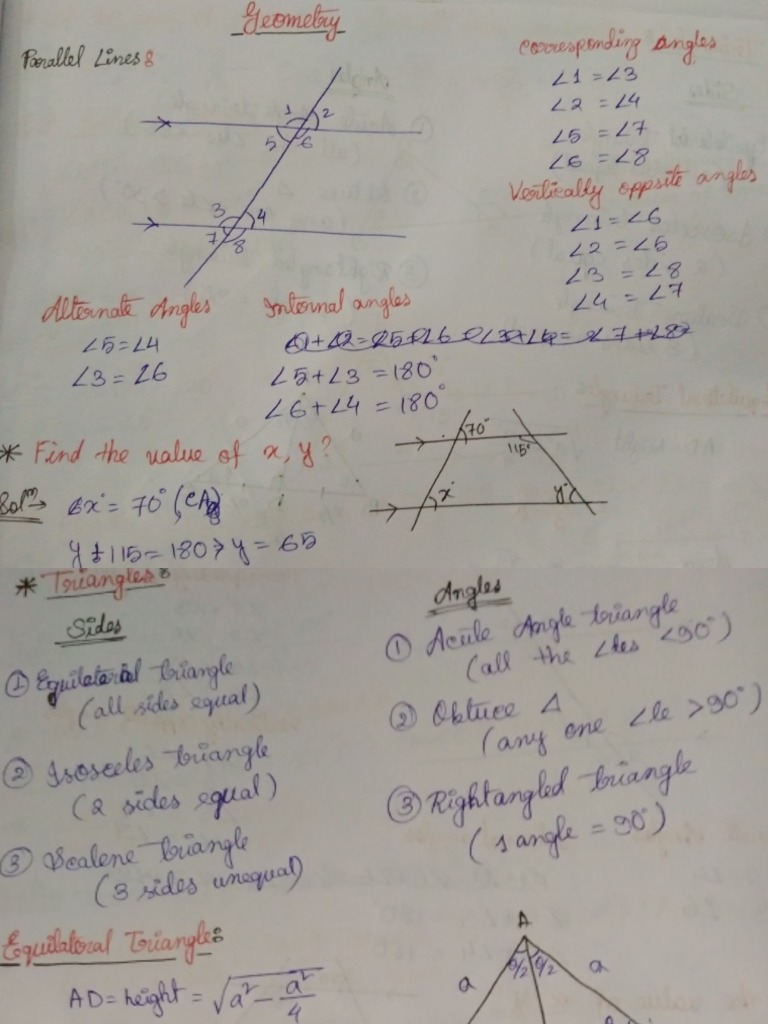 Geometry
Parallel Lines:
1 2
5 6
3 4
7 8
Corresponding Angles
∠1 = ∠3
∠2 = ∠4
∠5 = ∠7
∠6 = ∠8
Vertically opposite angles
∠1 = ∠6
∠2 = ∠5
∠3 = ∠8
∠4 = ∠7
Alternate Angles
∠5 = ∠4
∠3 = ∠6
Internal angles
∠5 + ∠3 = 180°
∠6 + ∠4 = 180°
* Find the value of x, y?
70°
115°
x°
y°
Solⁿ→ ∠x° = 70° (CA)
y + 115 = 180 > y = 65
* Triangles:
Sides
① Equilateral triangle
(all sides equal)
② Isosceles triangle
(2 sides equal)
③ Scalene triangle
(3 sides unequal)
Angles
① Acute Angle triangle
(all the ∠les <90°)
② Obtuce Δ
(any one ∠le >90°)
③ Rightangled triangle
(1 angle = 90°)
Equilateral Triangle:
AD = height = √a² - a²/4
A
θ/2 θ/2
a a